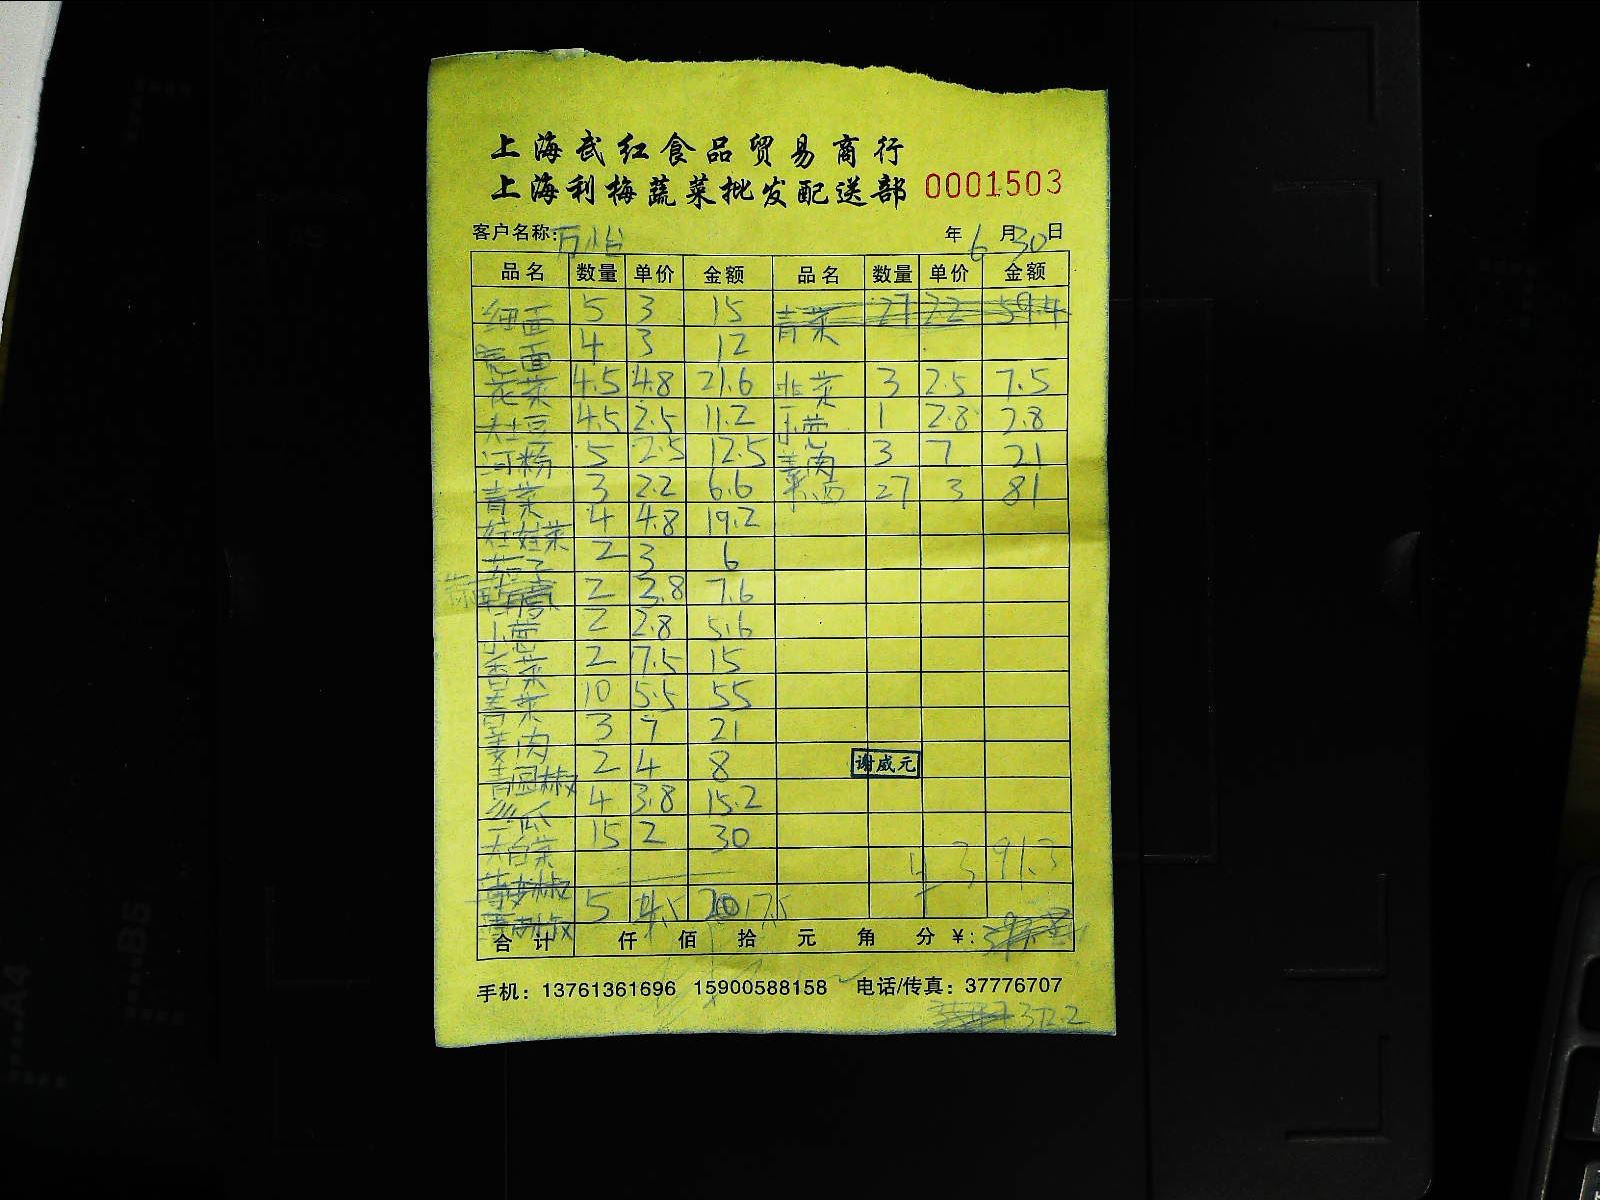 上海武红食品贸易商行
上海利梅蔬菜批发配送部 0001503
客户名称: 万怡 年 6 月 30 日
品名 数量 单价 金额 品名 数量 单价 金额
细面 5 3 15 青菜 27 2.2 59.4
宽面 4 3 12
花菜 4.5 4.8 21.6 韭菜 3 2.5 7.5
土豆 4.5 2.5 11.2 小葱 1 2.8 2.8
河粉 5 2.5 12.5 姜肉 3 7 21
青菜 3 2.2 6.6 27 3 81
娃娃菜 4 4.8 19.2
茄子 2 3 6
2 3.8 7.6
小葱 2 2.8 5.6
香菜 2 7.5 15
青菜 10 5.5 55
姜肉 3 7 21
青圆椒 2 4 8 谢威元
丝瓜 4 3.8 15.2
大白菜 15 2 30
391.3
5 17.5
合计 仟 佰 拾 元 角 分 ¥:
手机: 13761361696 15900588158 电话/传真: 37776707